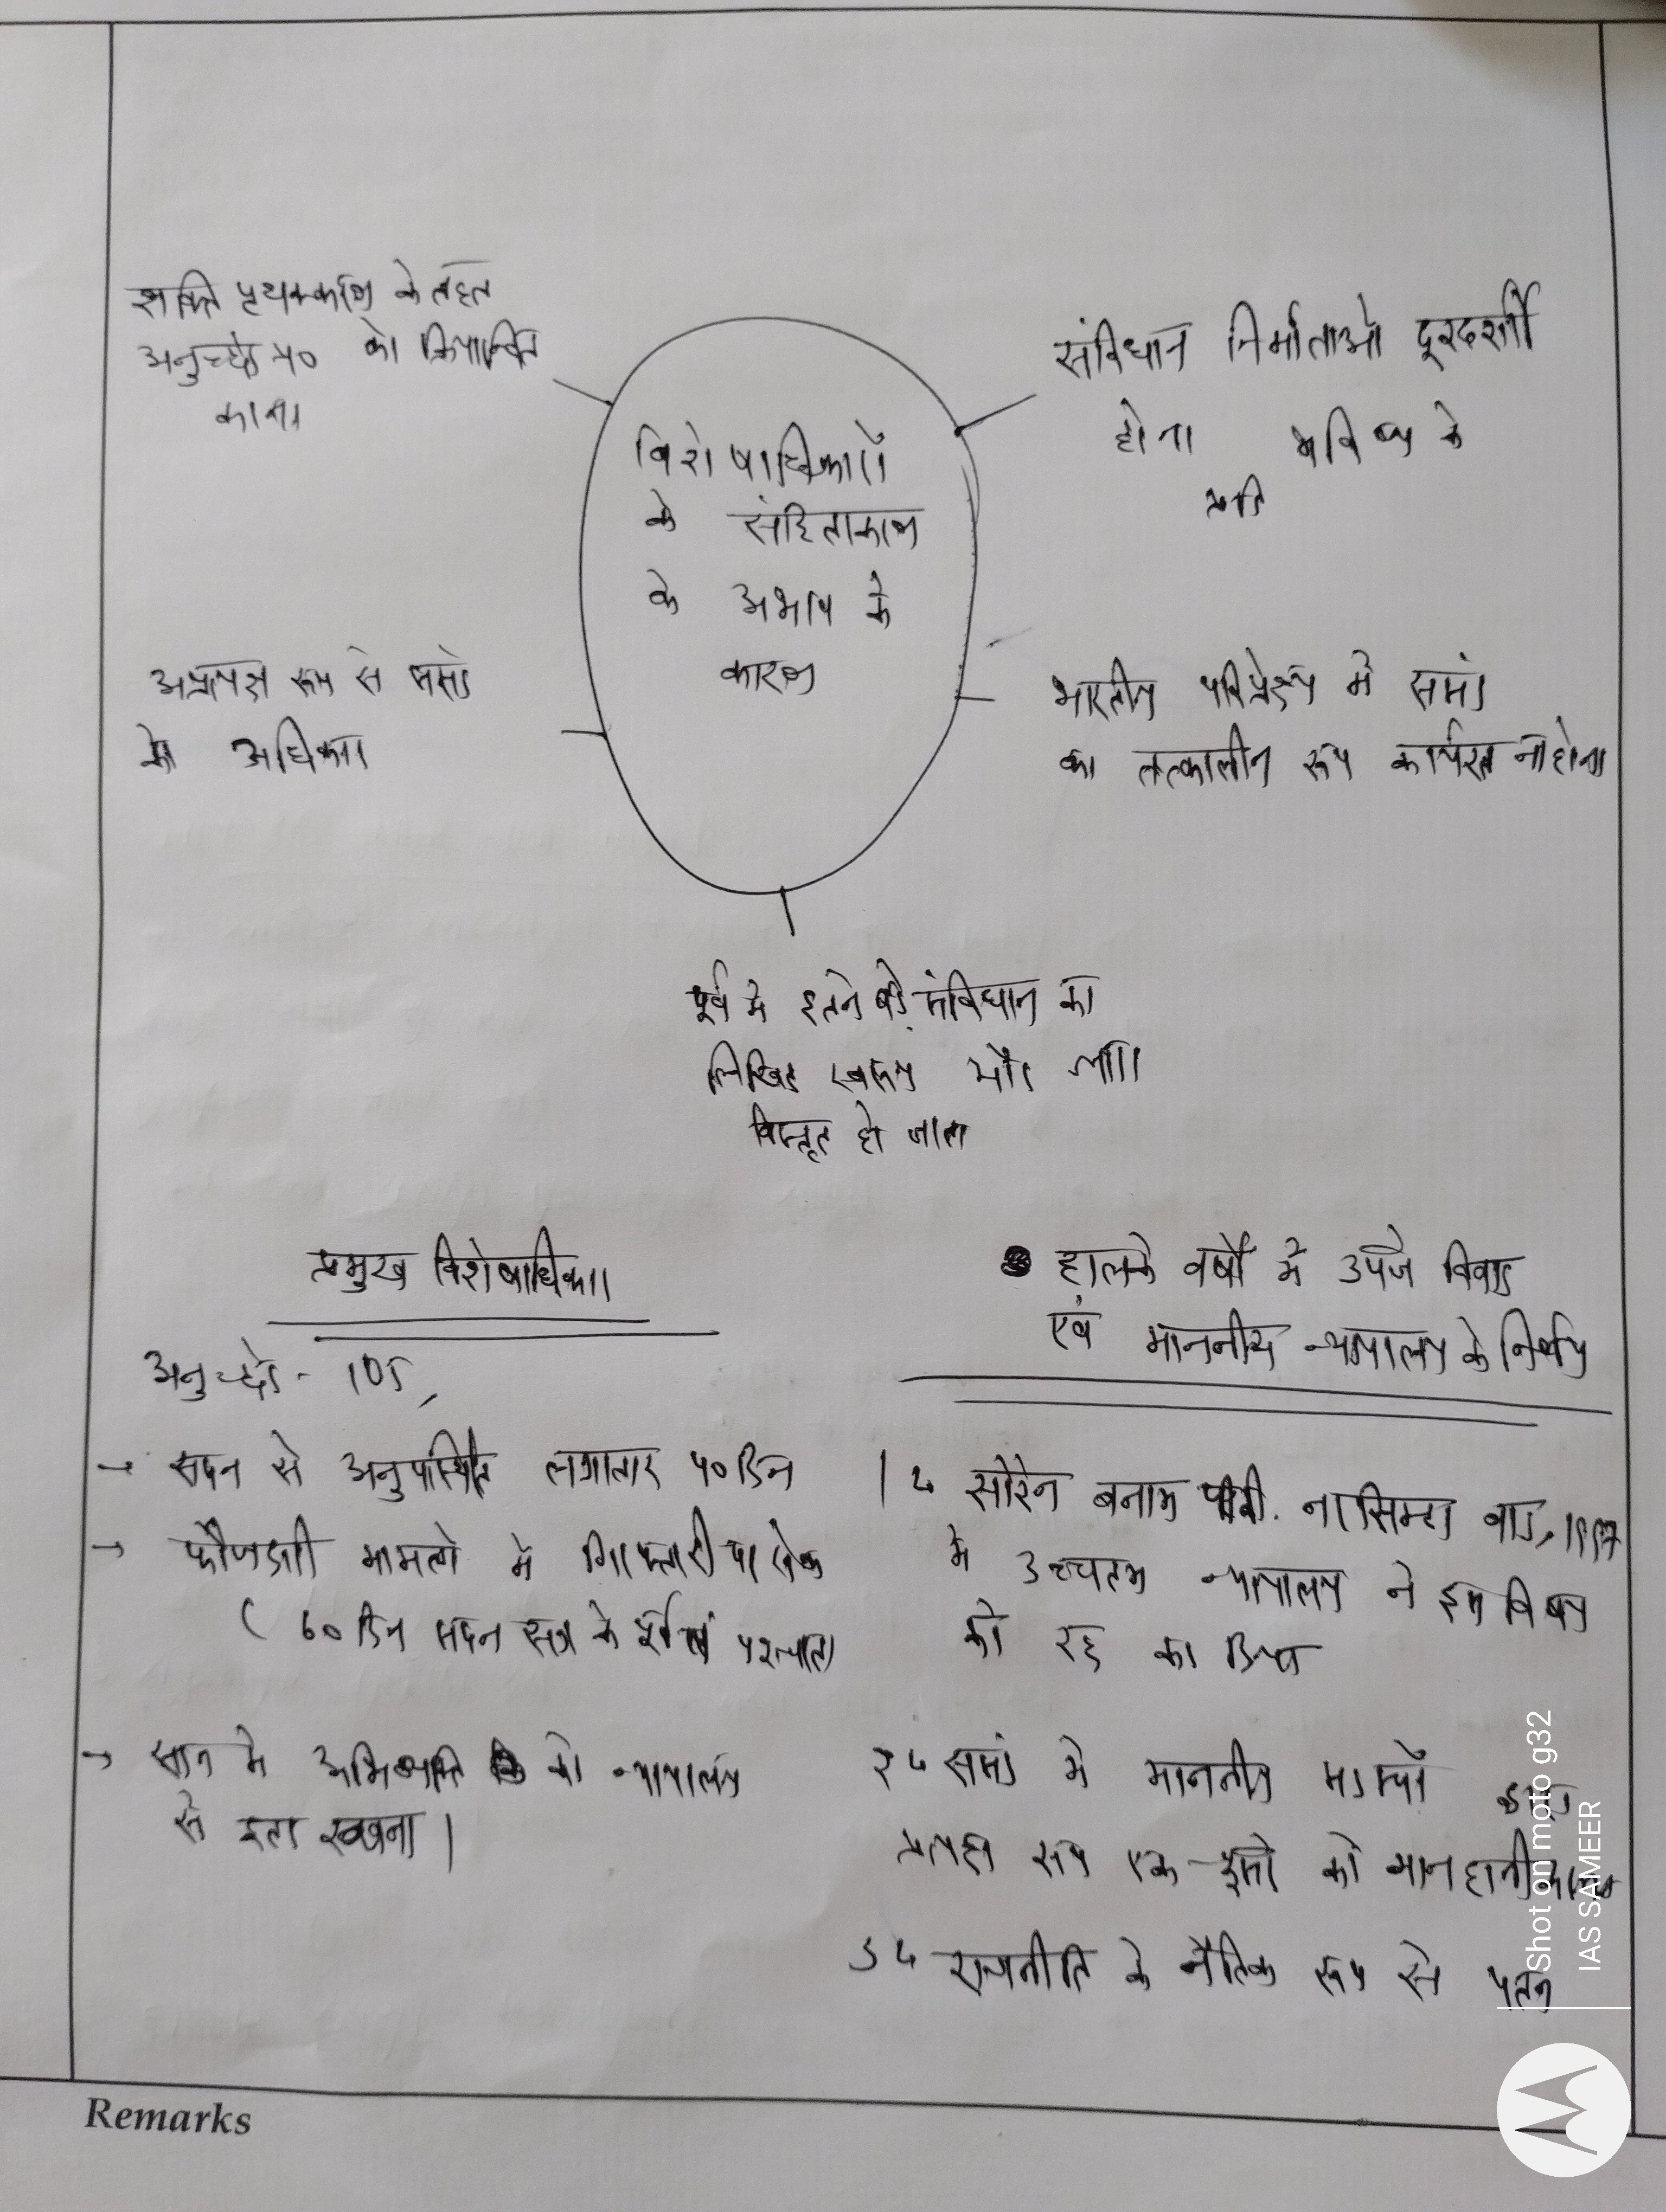 शक्ति पृथक्करण के तहत
अनुच्छेद 50 को क्रियान्वित
करना
संविधान निर्माताओ दूरदर्शी
होना भविष्य के
प्रति
विशेषाधिकारों
के संहिताकरण
के अभाव के
कारण
अप्रत्यक्ष रूप से संसद
के अधिकार
भारतीय परिप्रेक्ष्य मे संसद
का तत्कालीन रूप कार्यरत ना होना
पूर्व मे इतने बडे संविधान का
लिखित स्वरूप और ज्यादा
विस्तृत हो जाता
प्रमुख विशेषाधिकार
अनुच्छेद - 105,
→ सदन से अनुपस्थिति लगातार 50 दिन
→ फौजदारी मामलो मे गिरफ्तारी पर रोक
( 60 दिन सदन सत्र के पूर्व एवं पश्चात)
→ सदन मे अभिव्यक्ति को न्यायालय
से हटा रखना |
हालके वर्षों मे उपजे विवाद
एवं माननीय न्यायालय के निर्णय
1 सोरेन बनाम पीवी. नरसिम्हा वाद, 1997
मे उच्चतम न्यायालय ने इस विषय
को रद्द कर दिया
2 संसद मे माननीय सदस्यों द्वारा
प्रत्यक्ष रूप एक-दूसरे को मानहानी
3 राजनीति के नैतिक रूप से पतन
Remarks
Shot on moto g32
IAS SAMEER